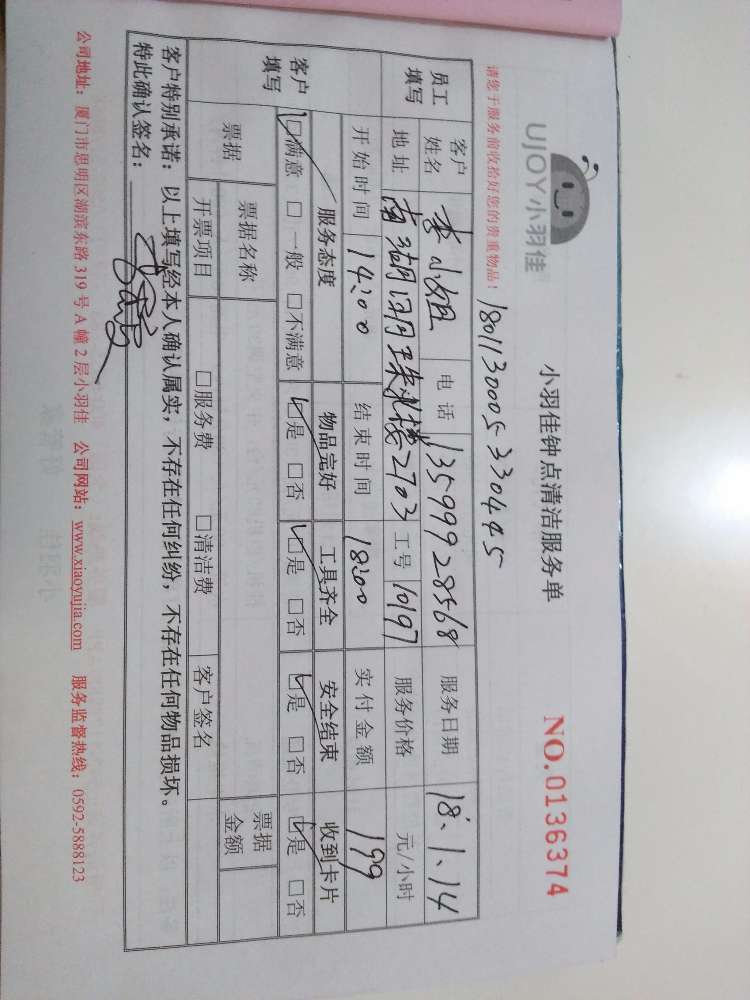 UJOY小羽佳
小羽佳钟点清洁服务单
NO.0136374
请您于服务前收拾好您的贵重物品!
1801130005330445
员工填写 客户姓名 李小姐 电话 13599928568 服务日期 18.1.14
地址 南湖明珠 楼2703 工号 10197 服务价格 元/小时
开始时间 14:00 结束时间 18:00 实付金额 199
客户填写 服务态度 物品完好 工具齐全 安全结束 收到卡片
☑满意 □一般 □不满意 ☑是 □否 ☑是 □否 ☑是 □否 ☑是 □否
票据 票据名称 票据金额
开票项目 □服务费 □清洁费 客户签名
客户特别承诺:以上填写经本人确认属实,不存在任何纠纷,不存在任何物品损坏。
特此确认签名:
公司地址:厦门市思明区湖滨东路319号A幢2层小羽佳 公司网站:www.xiaoyujia.com 服务监督热线:0592-5888123